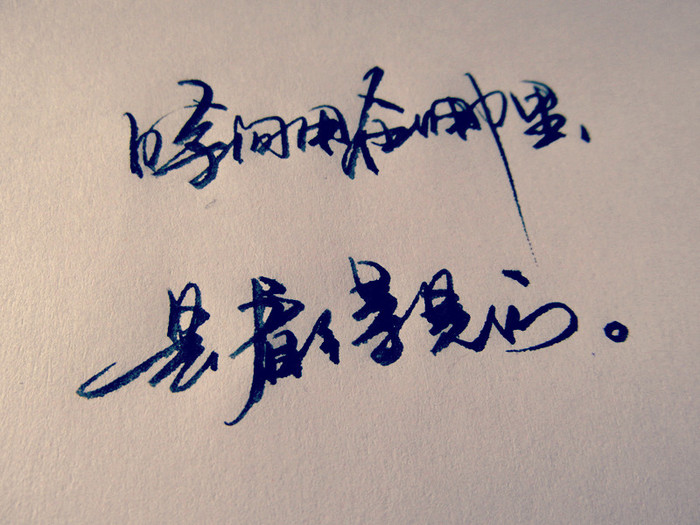 时间用在哪里、
是看得见的。